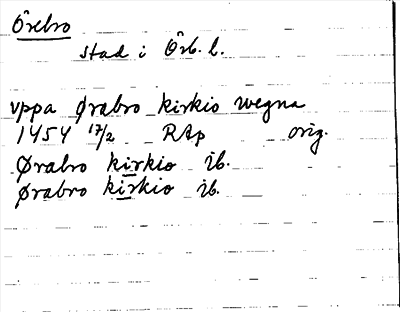 Örebro
stad i Örb. l.
vppa Ørabro kirkio wegna
1454 17/2 RAp orig.
Ørabro kirkio ib.
Ørabro kirkio ib.